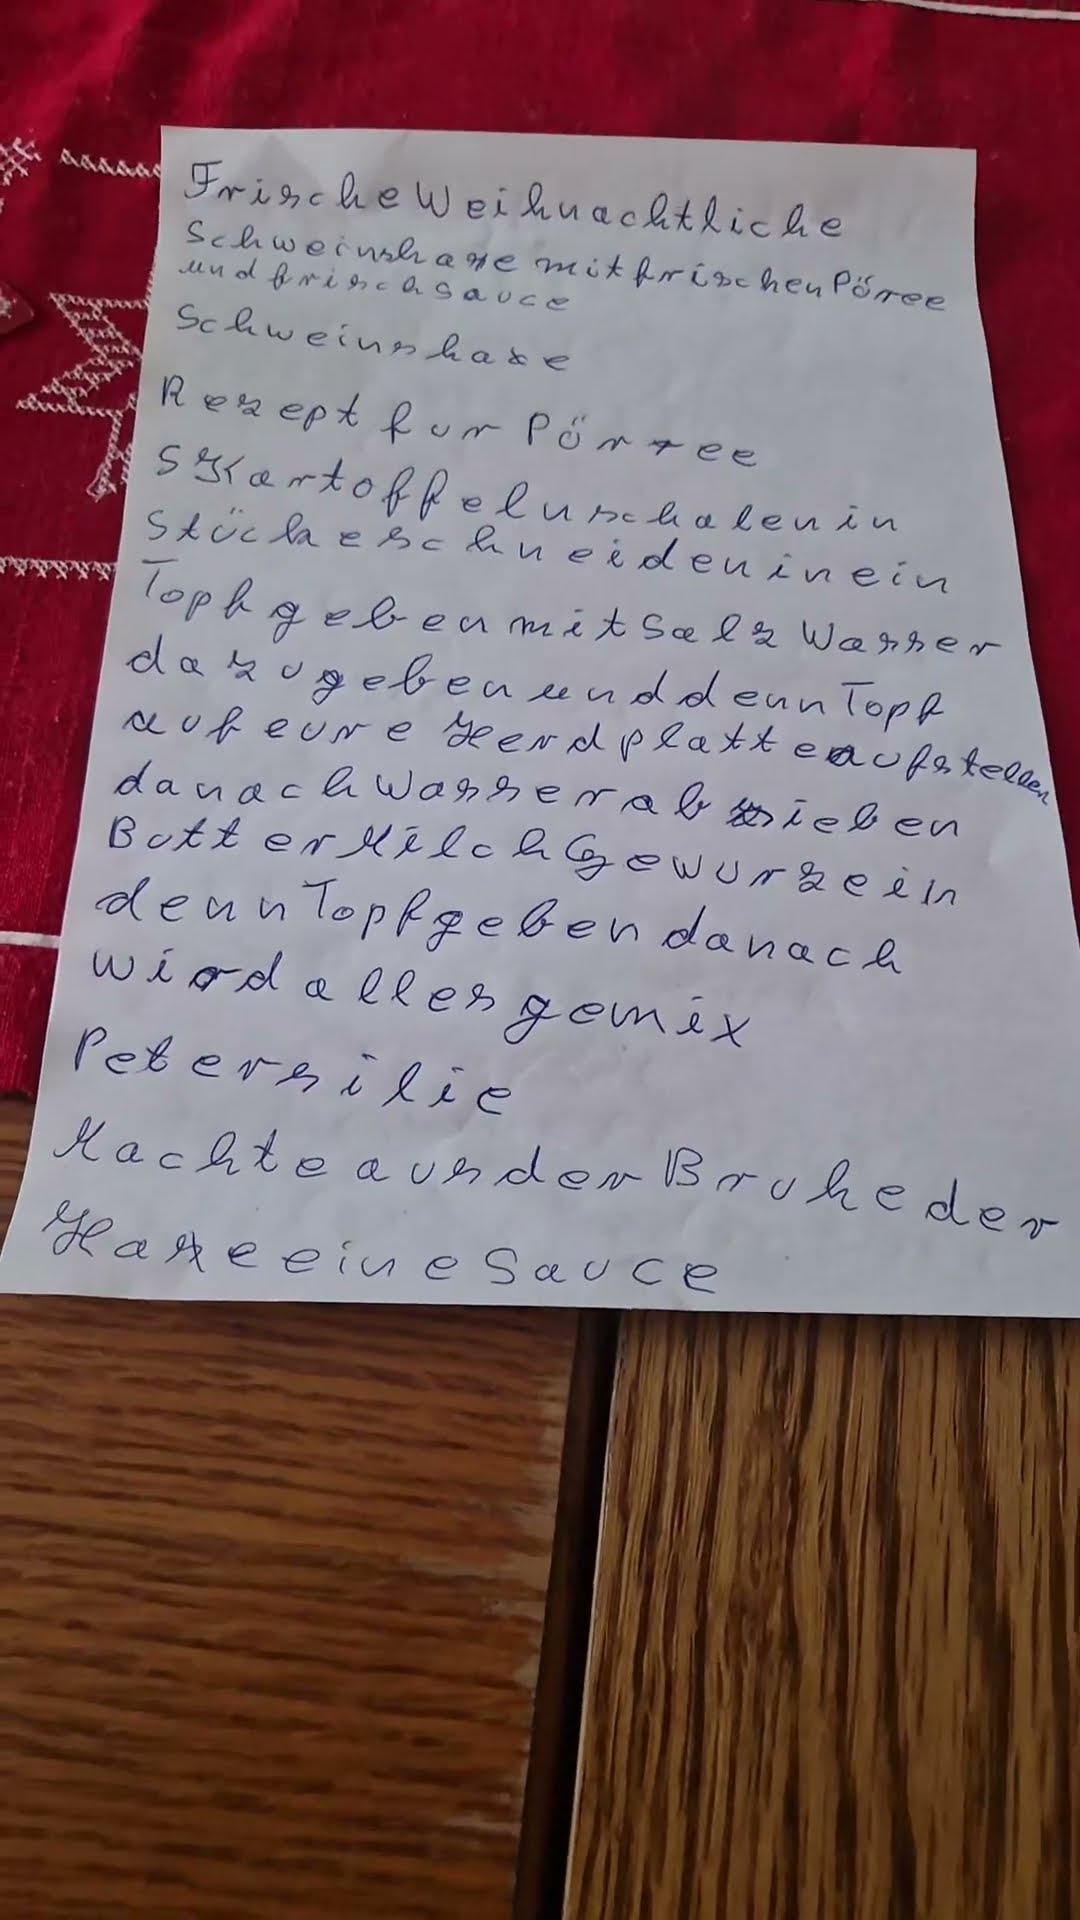 Frische Weihnachtliche
Schweinshaxe mit frischen Pörree
und frisch Sauce
Schweinshaxe
Rezept fur Pörree
5 Kartoffeln schalen in
Stücke schneiden in ein
Topf geben mit Salz Wasser
dazu geben und denn Topf
auf eure Herdplatte aufstellen
danach Wasser ab sieben
Butter Milch Gewurze in
denn Topf geben danach
wird alles gemix
Petersilie
Machte aus der Bruhe der
Haxe eine Sauce